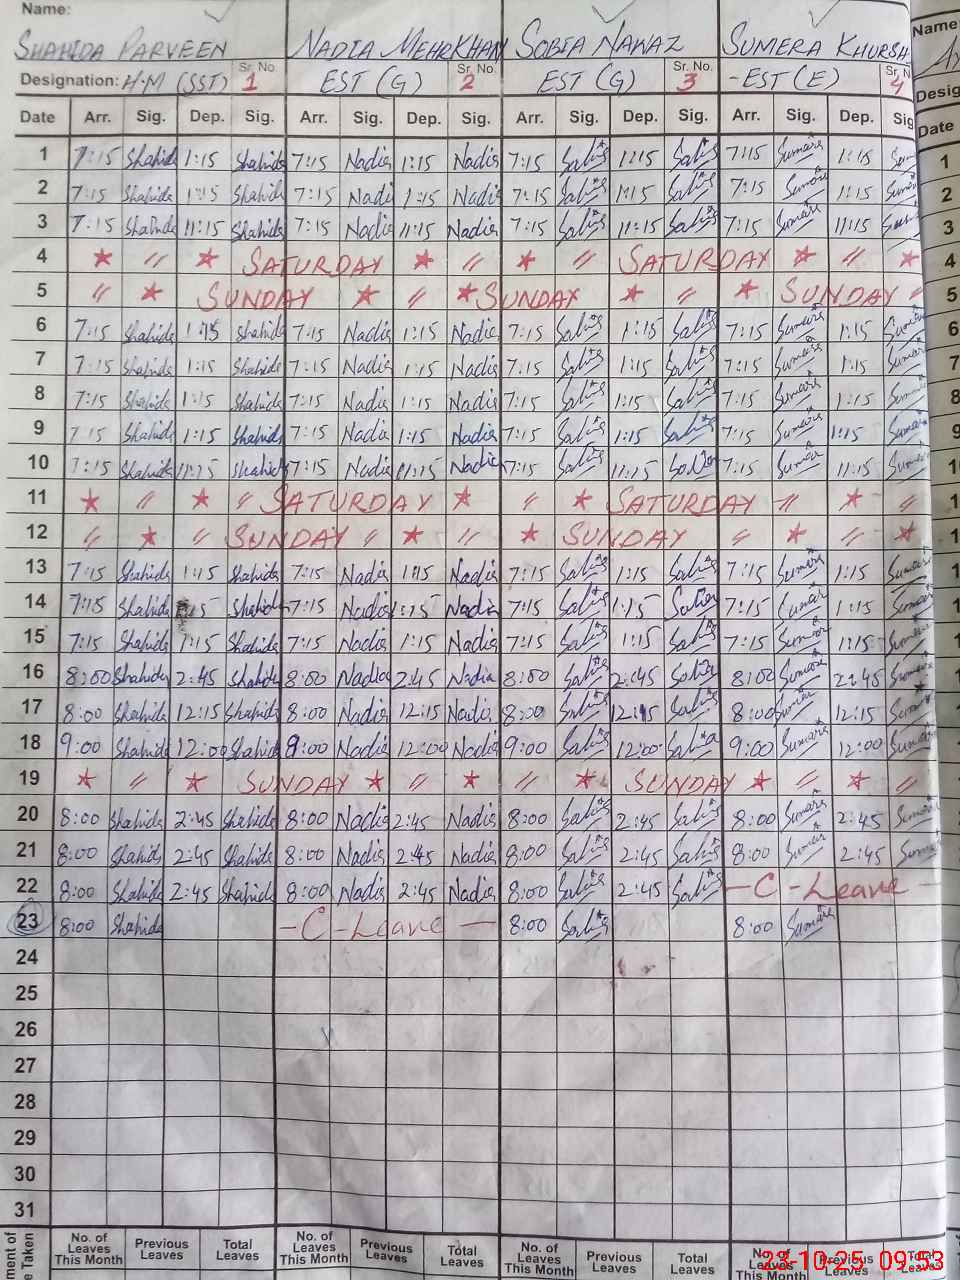 Name: Name:
SHAHIDA PARVEEN NADIA MEHRKHAN SOBIA NAWAZ SUMERA KHURSH
Designation: H.M (SST) Sr. No. 1 EST (G) Sr. No. 2 EST (G) Sr. No. 3 -EST (E) Sr. N 4 Desig
Date Arr. Sig. Dep. Sig. Arr. Sig. Dep. Sig. Arr. Sig. Dep. Sig. Arr. Sig. Dep. Sig Date
1 7:15 Shahida 1:15 Shahida 7:15 Nadia 1:15 Nadia 7:15 1:15 7:15 Sumera 1:15 1
2 7:15 Shahida 1:15 Shahida 7:15 Nadia 1:15 Nadia 7:15 1:15 7:15 Sumera 1:15 2
3 7:15 Shahida 11:15 Shahida 7:15 Nadia 11:15 Nadia 7:15 11:15 7:15 Sumera 11:15 3
4 ★〃★ SATURDAY ★〃★〃 SATURDAY ★〃★ 4
5 〃★ SUNDAY ★〃★ SUNDAY ★〃★ SUNDAY 〃 5
6 7:15 Shahida 1:15 Shahida 7:15 Nadia 1:15 Nadia 7:15 1:15 7:15 Sumera 1:15 6
7 7:15 Shahida 1:15 Shahida 7:15 Nadia 1:15 Nadia 7:15 1:15 7:15 Sumera 1:15 7
8 7:15 Shahida 1:15 Shahida 7:15 Nadia 1:15 Nadia 7:15 1:15 7:15 Sumera 1:15 8
9 7:15 Shahida 1:15 Shahida 7:15 Nadia 1:15 Nadia 7:15 1:15 7:15 Sumera 1:15 9
10 7:15 Shahida 11:15 Shahida 7:15 Nadia 11:15 Nadia 7:15 11:15 7:15 Sumera 11:15
11 ★〃★〃 SATURDAY ★〃★ SATURDAY 〃★〃
12 〃★〃 SUNDAY 〃★〃★ SUNDAY 〃★〃★
13 7:15 Shahida 1:15 Shahida 7:15 Nadia 1:15 Nadia 7:15 1:15 7:15 Sumera 1:15
14 7:15 Shahida 1:15 Shahida 7:15 Nadia 1:15 Nadia 7:15 1:15 7:15 Sumera 1:15
15 7:15 Shahida 1:15 Shahida 7:15 Nadia 1:15 Nadia 7:15 1:15 7:15 Sumera 1:15
16 8:00 Shahida 2:45 Shahida 8:00 Nadia 2:45 Nadia 8:00 2:45 8:00 Sumera 2:45
17 8:00 Shahida 12:15 Shahida 8:00 Nadia 12:15 Nadia 8:00 12:15 8:00 Sumera 12:15
18 9:00 Shahida 12:00 Shahida 9:00 Nadia 12:00 Nadia 9:00 12:00 9:00 Sumera 12:00
19 ★〃★ SUNDAY ★〃★〃★ SUNDAY ★〃★〃
20 8:00 Shahida 2:45 Shahida 8:00 Nadia 2:45 Nadia 8:00 2:45 8:00 Sumera 2:45
21 8:00 Shahida 2:45 Shahida 8:00 Nadia 2:45 Nadia 8:00 2:45 8:00 Sumera 2:45
22 8:00 Shahida 2:45 Shahida 8:00 Nadia 2:45 Nadia 8:00 2:45 - C - Leave -
23 8:00 Shahida - C - Leave - 8:00 8:00 Sumera
24
25
26
27
28
29
30
31
No. of Leaves This Month Previous Leaves Total Leaves No. of Leaves This Month Previous Leaves Total Leaves No. of Leaves This Month Previous Leaves Total Leaves No. of Leaves This Month Previous Leaves Total Leaves
ment of
e Taken
23-10-25 09:53